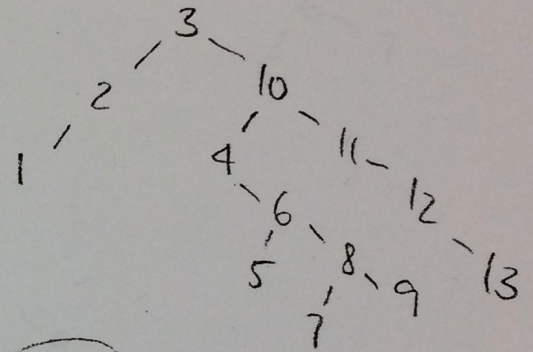 3
2 10
1 4 11
6 12
5 8 13
7 9